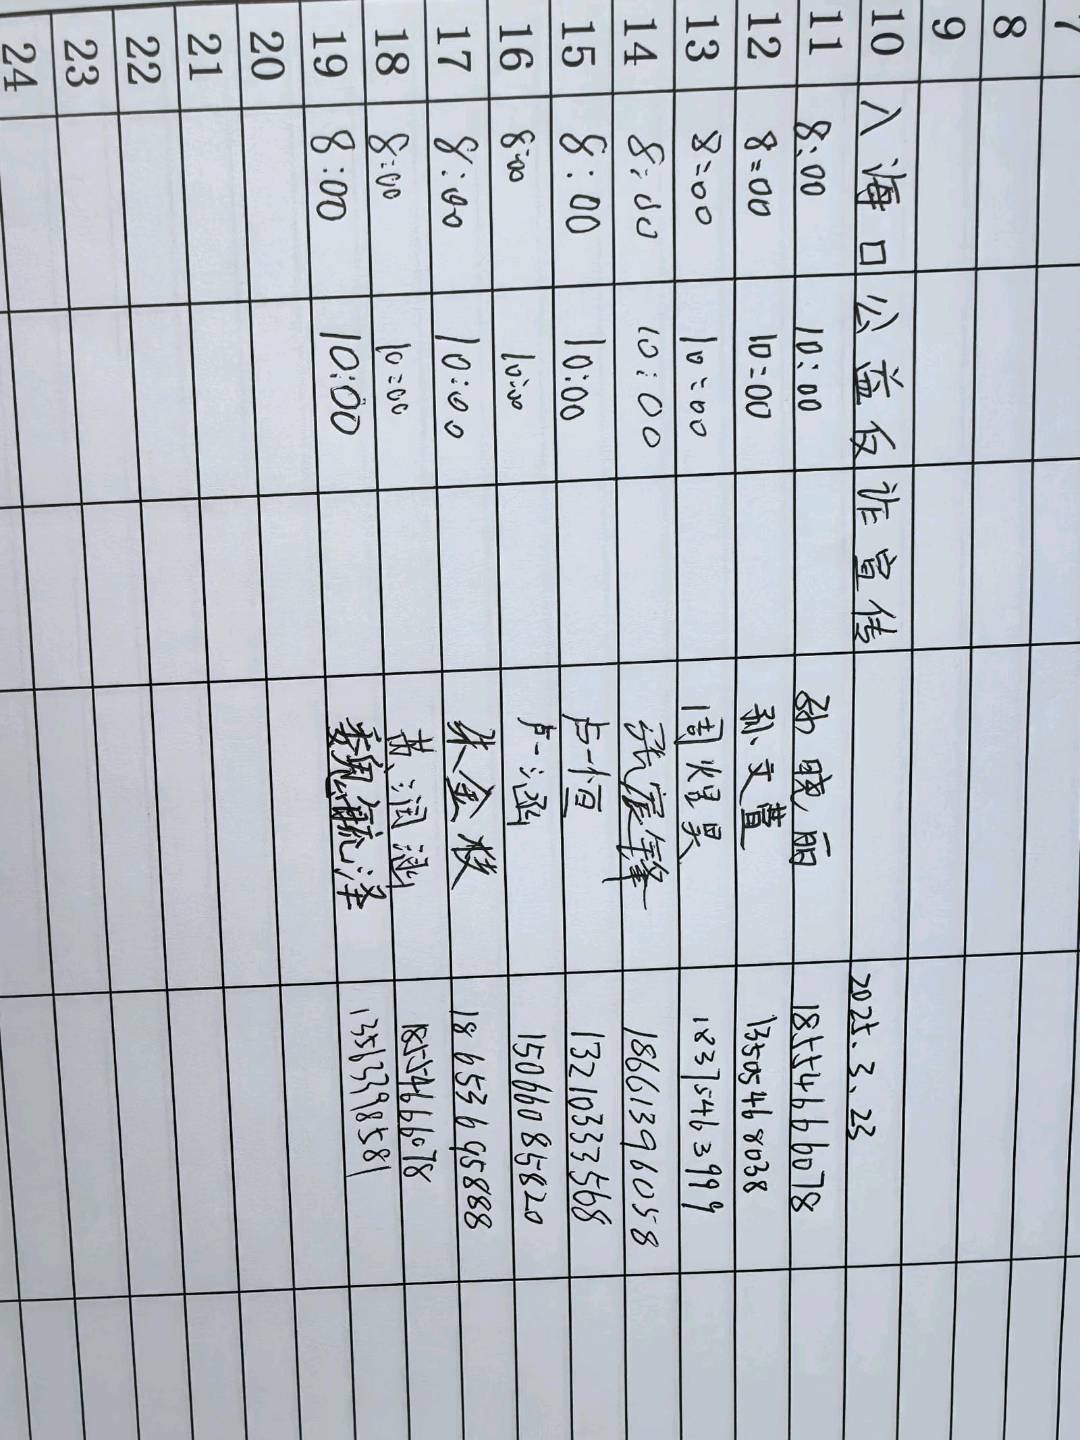 7
8
9
10 入海口公益反诈宣传 2025.3.23
11 8:00 10:00 孙晓丽 18554666078
12 8:00 10:00 孙文萱 13505468038
13 8:00 10:00 周煜昊 18375463999
14 8:00 10:00 张宸锋 18661396058
15 8:00 10:00 卢一恒 13210333568
16 8:00 10:00 卢一涵 15066085820
17 8:00 10:00 朱金枝 18653695888
18 8:00 10:00 黄润涵 18554666078
19 8:00 10:00 毓泽 13563398581
20
21
22
23
24